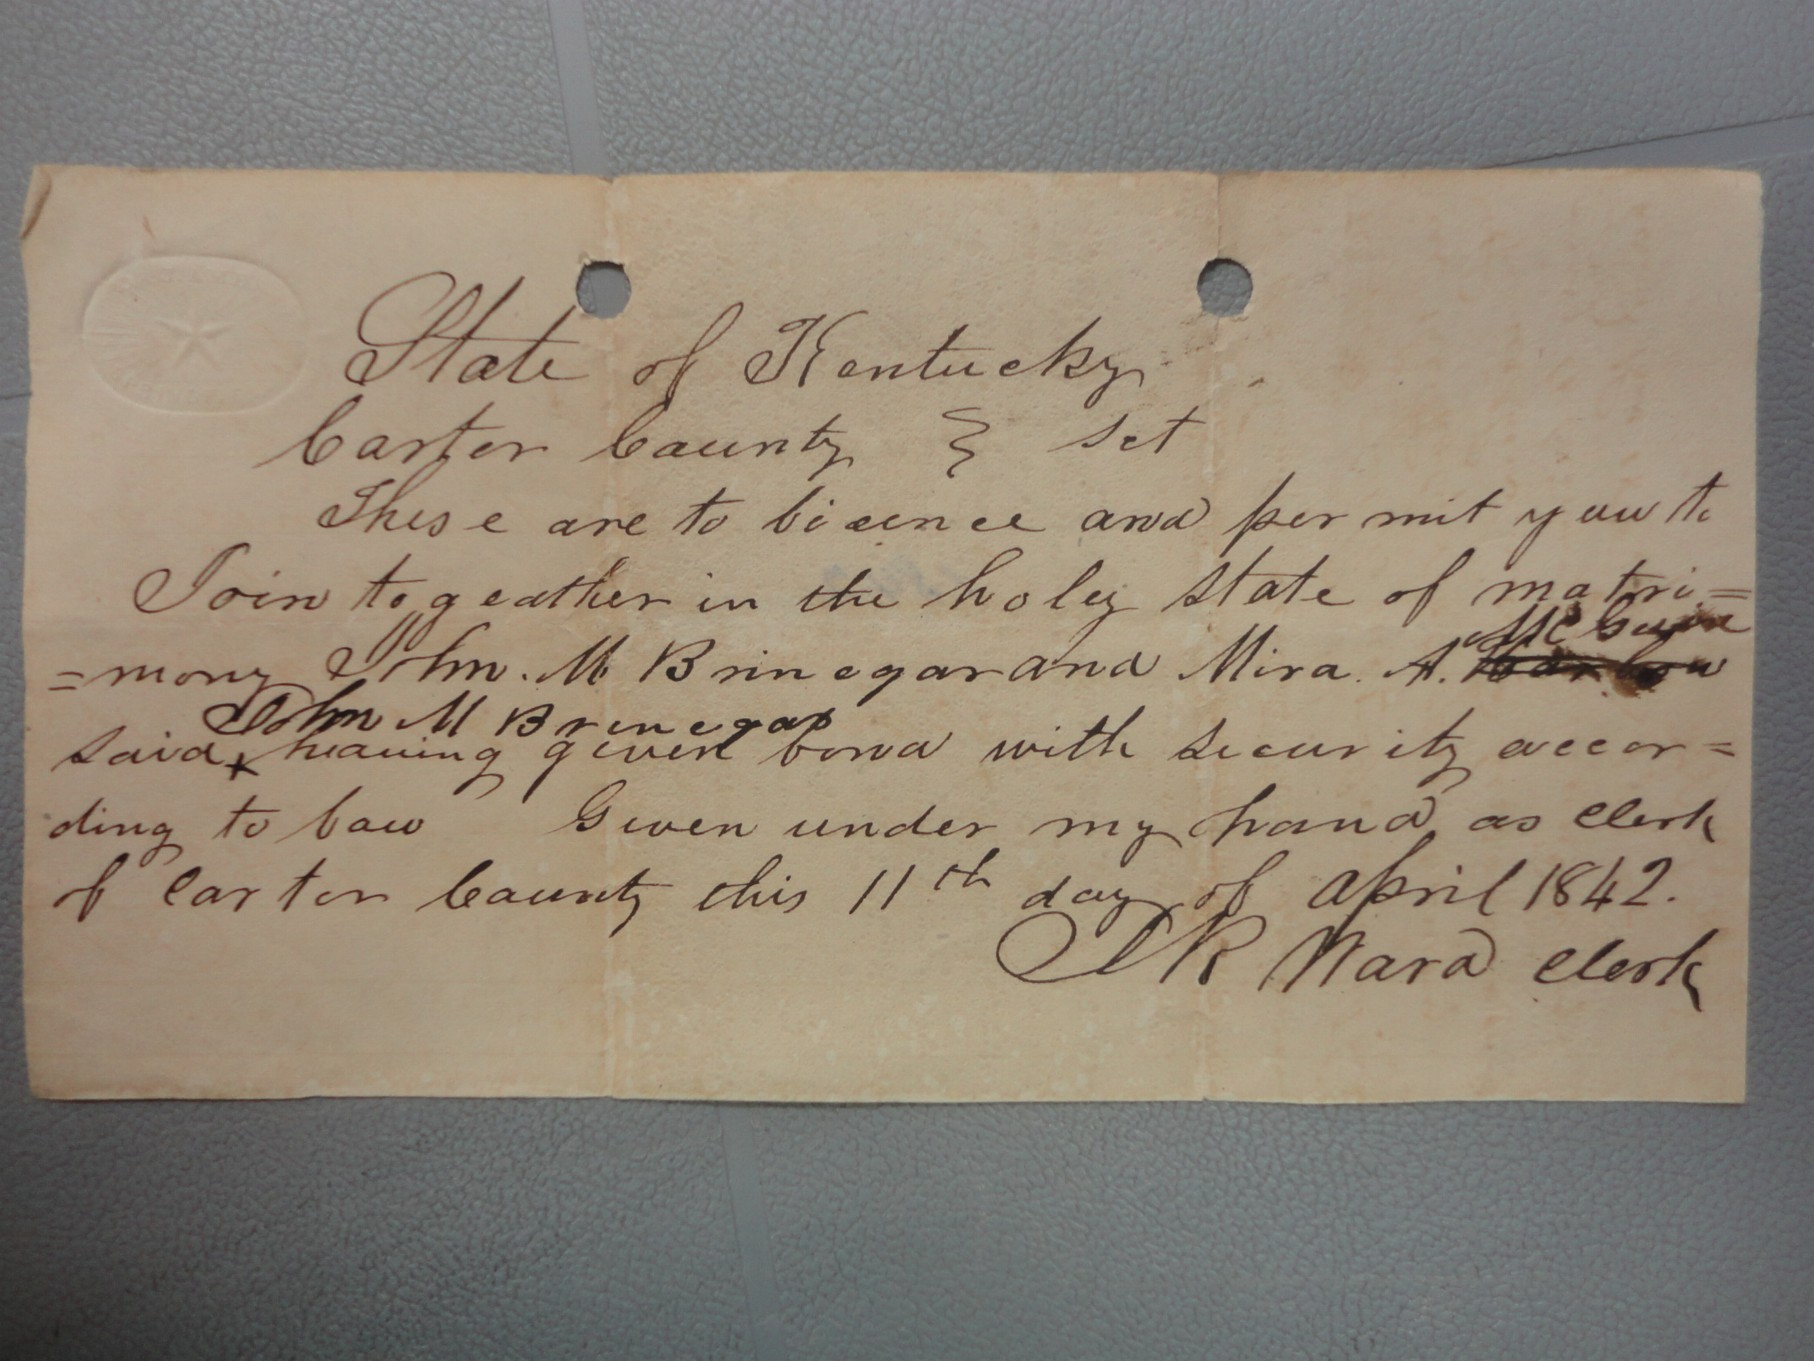 State of Kentucky
Carter County } sct
These are to licence and permit you to
Join togeather in the holy state of matri=
=mony John. M Brinegar and Mira. A. McGuire
John M Brinegar
said x heaving given bond with security accor=
ding to Law Given under my hand as Clerk
of Carter County this 11th day of April 1842.
R Ward Clerk